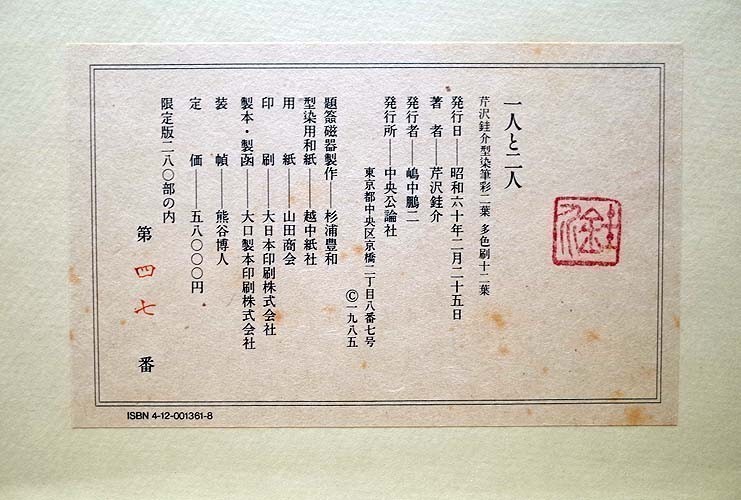 一人と二人
芹沢銈介型染筆彩二葉 多色刷十二葉
発行日――昭和六十年二月二十五日
著者――芹沢銈介
発行者――嶋中鵬二
発行所――中央公論社
東京都中央区京橋二丁目八番七号
©一九八五
題簽磁器製作――杉浦豊和
型染用和紙――越中紙社
用紙――山田商会
印刷――大日本印刷株式会社
製本・製函――大口製本印刷株式会社
装幀――熊谷博人
定価――五八〇〇〇円
限定版二八〇部の内
第四七番
ISBN 4-12-001361-8